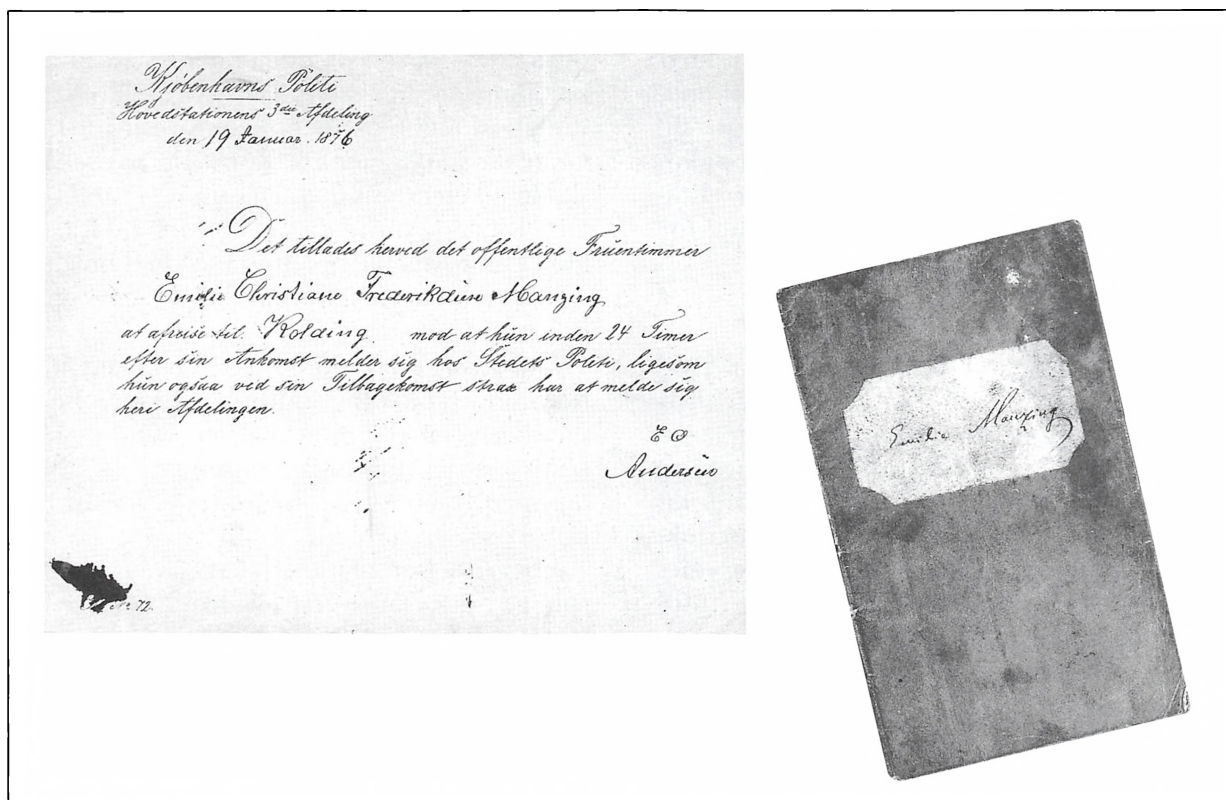 Kjøbenhavns Politi
Hovedstationens 3die Afdeling
den 19 Januar. 1876
Det tillades herved det offentlige Fruentimmer
Emilie Christiane Frederikdine Manzing
at afreise til Kolding mod at hun inden 24 Timer
efter sin Ankomst melder sig hos Stedets Politi, ligesom
hun ogsaa ved sin Tilbagekomst strax har at melde sig
heri Afdelingen.
E O
Andersen
72.
Emilie Manzing